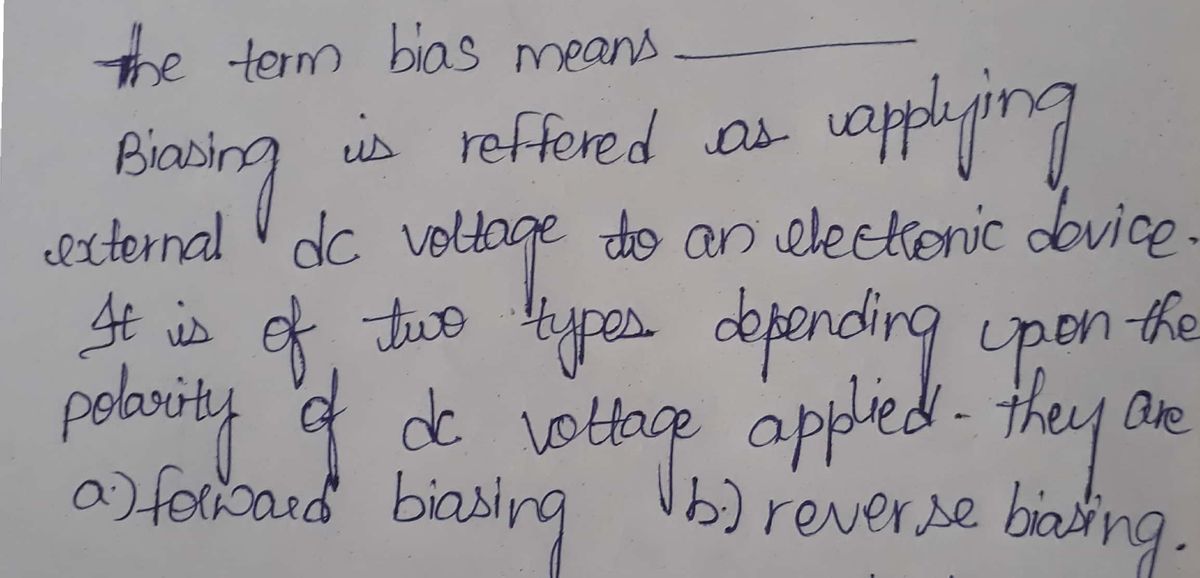 the term bias means ———
Biasing is reffered as applying
external dc voltage to an electronic device.
It is of two types depending upon the
polarity of dc voltage applied - they are
a.) forward biasing b.) reverse biasing.